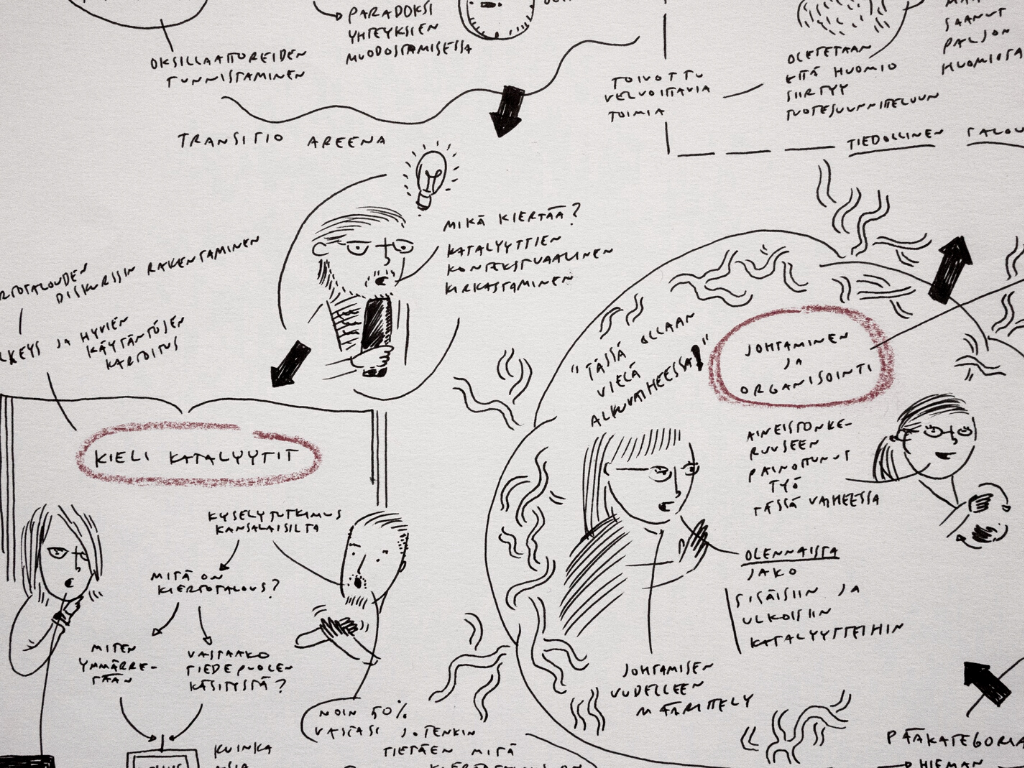 OKSILLAATTOREIDEN
TUNNISTAMINEN
PARADOKSI
YHTEYKSIEN
MUODOSTAMISESSA
TOIVOTTU
VELVOITTAVIA
TOIMIA
OLETETAAN
ETTÄ HUOMIO
SIIRTYY
TUOTESUUNNITTELUUN
SAANUT
PALJON
HUOMIOTA
TIEDOLLINEN TALOU
TRANSITIO AREENA
MIKÄ KIERTÄÄ?
KATALYYTTIEN
KONTEKSTUAALINEN
KIRKASTAMINEN
RTOTALOUDEN
DISKURSSIN RAKENTAMINEN
LKEYS JA HYVIEN
KÄYTÄNTÖJEN
KARTOITUS
KIELI KATALYYTIT
KYSELYTUTKIMUS
KANSALAISILTA
MITÄ ON
KIERTOTALOUS?
MITEN
YMMÄRRE-
TÄÄN
VASTAAKO
TIEDEPUOLEN
KÄSITYSTÄ?
NOIN 50%
VASTASI JOTENKIN
TIETÄEN MITÄ
KUINKA
"TÄSSÄ OLLAAN
VIELÄ
ALKUVAIHEESSA!"
JOHTAMINEN
JA
ORGANISOINTI
AINEISTONKE-
RUUSEEN
PAINOTTUNUT
TYÖ
TÄSSÄ VAIHEESSA
OLENNAISTA
JAKO
SISÄISIIN JA
ULKOISIIN
KATALYYTTEIHIN
JOHTAMISEN
UUDELLEEN
MÄÄRITTELY
PÄÄKATEGORIA
HIEMAN